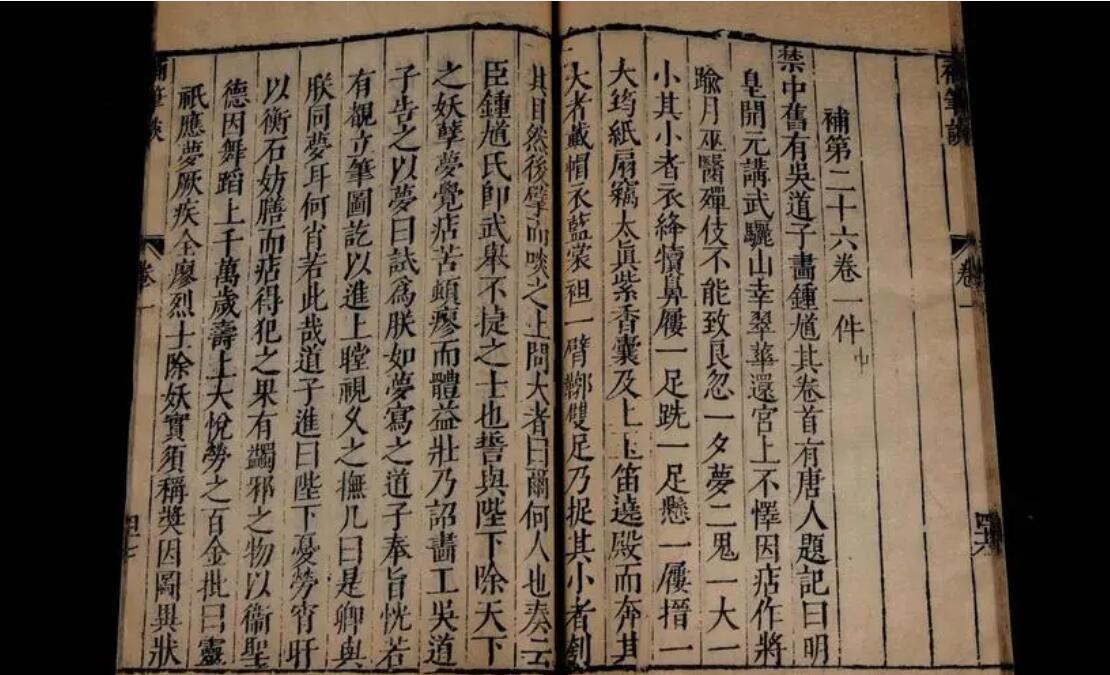 補筆談　卷一　四六
補第二十六卷一件中
禁中舊有吳道子畫鍾馗其卷首有唐人題記曰明
皇開元講武驪山幸翠華還宮上不懌因痁作將
踰月巫醫殫伎不能致良忽一夕夢二鬼一大一
小其小者衣絳犢鼻屨一足跣一足懸一屨搢一
大筠紙扇竊太眞紫香囊及上玉笛遶殿而奔其
大者戴帽衣藍裳袒一臂鞹雙足乃捉其小者刳
其目然後擘而啖之上問大者曰爾何人也奏云
臣鍾馗氏卽武舉不捷之士也誓與陛下除天下
之妖孽夢覺痁苦頓瘳而體益壯乃詔畫工吳道
子告之以夢曰試爲朕如夢寫之道子奉旨恍若
有覩立筆圖訖以進上瞠視久之撫几曰是卿與
朕同夢耳何肖若此哉道子進曰陛下憂勞宵旰
以衡石妨膳而痁得犯之果有蠲邪之物以衞聖
德因舞蹈上千萬歲壽上大悅勞之百金批曰靈
祇應夢厥疾全瘳烈士除妖實須稱奬因圖異狀
補筆談　卷一　四七